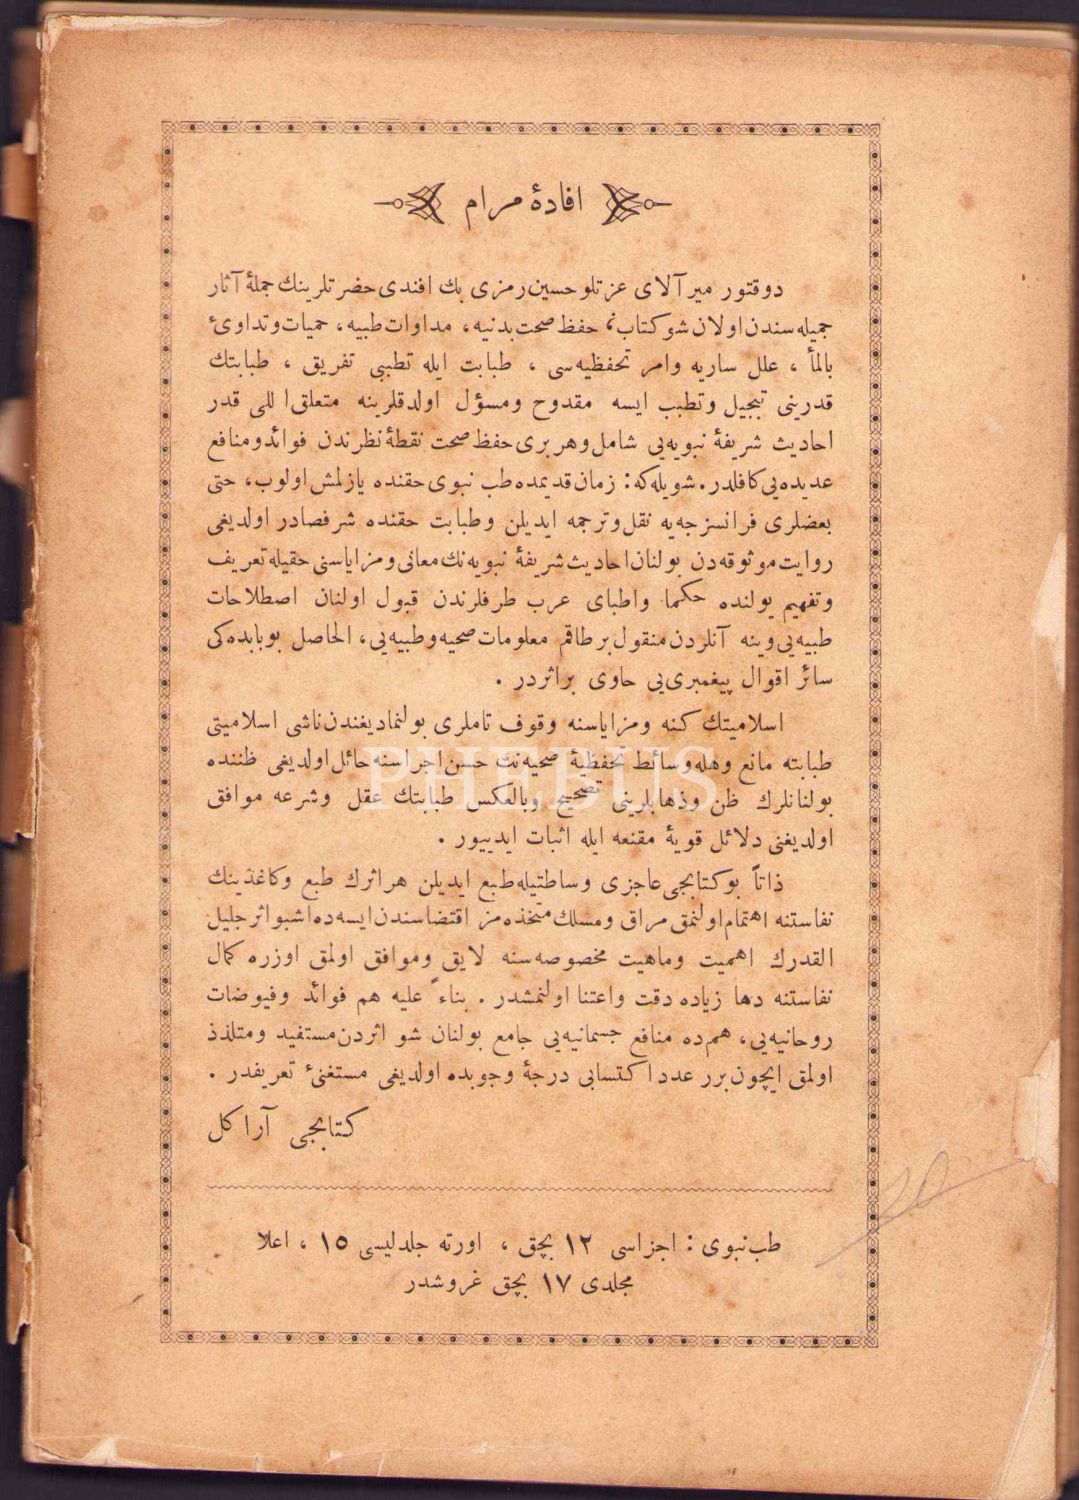 افادۀ مرام
دوقتور میر آلای عزتلو حسین رمزی بك افندی حضرتلرینك جملۀ آثار
جمیله سندن اولان شو كتاب، حفظ صحت بدنیه، مداوات طبیه، حمیات و تداوئ
بالمأ ، علل ساریه وامر تحفظیه سی ، طبابت ایله تطببی تفریق ، طبابتك
قدرینی تبجیل وتطبب ایسه مقدوح ومسؤل اولدقلرینه متعلق اللی قدر
احادیث شریفۀ نبویه یی شامل وهر بری حفظ صحت نقطۀ نظرندن فوائد ومنافع
عدیده یی كافلدر. شویله كه: زمان قدیمده طب نبوی حقنده یازلمش اولوب، حتی
بعضلری فرانسزجه یه نقل وترجمه ایدیلن وطبابت حقنده شرفصادر اولدیغی
روایت موثوقه دن بولنان احادیث شریفۀ نبویه نك معانی ومزایاسنی حقیله تعریف
وتفهیم یولنده حكما واطبای عرب طرفلرندن قبول اولنان اصطلاحات
طبیه یی وینه آنلردن منقول بر طاقم معلومات صحیه وطبیه یی، الحاصل بو بابده كی
سائر اقوال پیغمبری یی حاوی بر اثردر .
اسلامیتك كنه ومزایاسنه وقوف تاملری بولنمادیغندن ناشی اسلامیتی
طبابته مانع وهله وسائط تحفظیۀ صحیه نك حسن اجراسنه حائل اولدیغی ظننده
بولنانلرك ظن وذهابلرینی تصحیح وبالعكس طبابتك عقل وشرعه موافق
اولدیغنی دلائل قویۀ مقنعه ایله اثبات ایدییور .
ذاتاً بو كتابجی عاجزی وساطتیله طبع ایدیلن هر اثرك طبع وكاغذینك
نفاستنه اهتمام اولنمق مراق ومسلك متخذه مز اقتضاسندن ایسه ده اشبو اثر جلیل
القدرك اهمیت وماهیت مخصوصه سنه لایق وموافق اولمق اوزره كمال
نفاستنه دها زیاده دقت واعتنا اولنمشدر . بناءً علیه هم فوائد وفیوضات
روحانیه یی، هم ده منافع جسمانیه یی جامع بولنان شو اثردن مستفید ومتلذذ
اولمق ایچون برر عدد اكتسابی درجۀ وجوبده اولدیغی مستغنئ تعریفدر .
كتابجی آراكل
طب نبوی : اجزاسی ١٢ بچق ، اورته جلدلیسی ١٥ ، اعلا
مجلدی ١٧ بچق غروشدر
PHEBUS